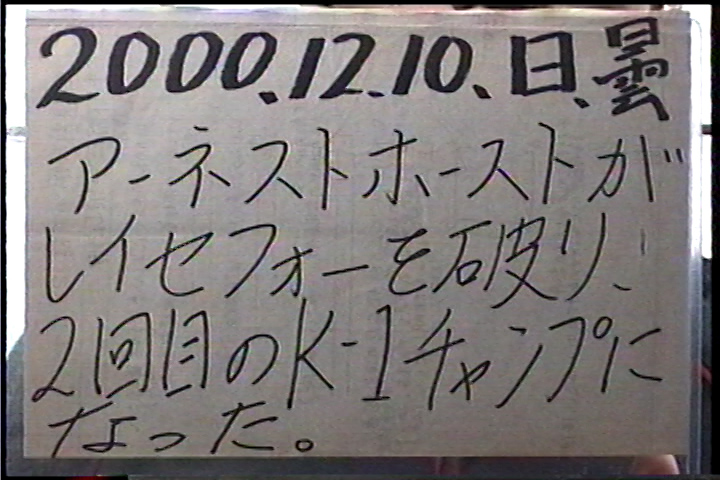 2000.12.10.日.曇
アーネストホーストが
レイセフォーを破り、
2回目のK-1チャンプに
なった。